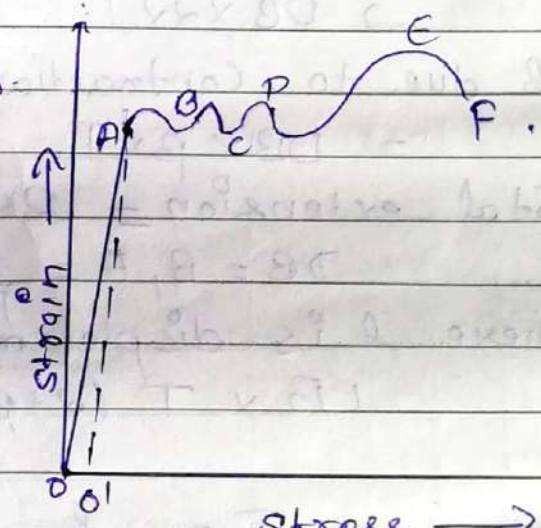 E
B
D
A
C
F.
Strain
O O'
stress